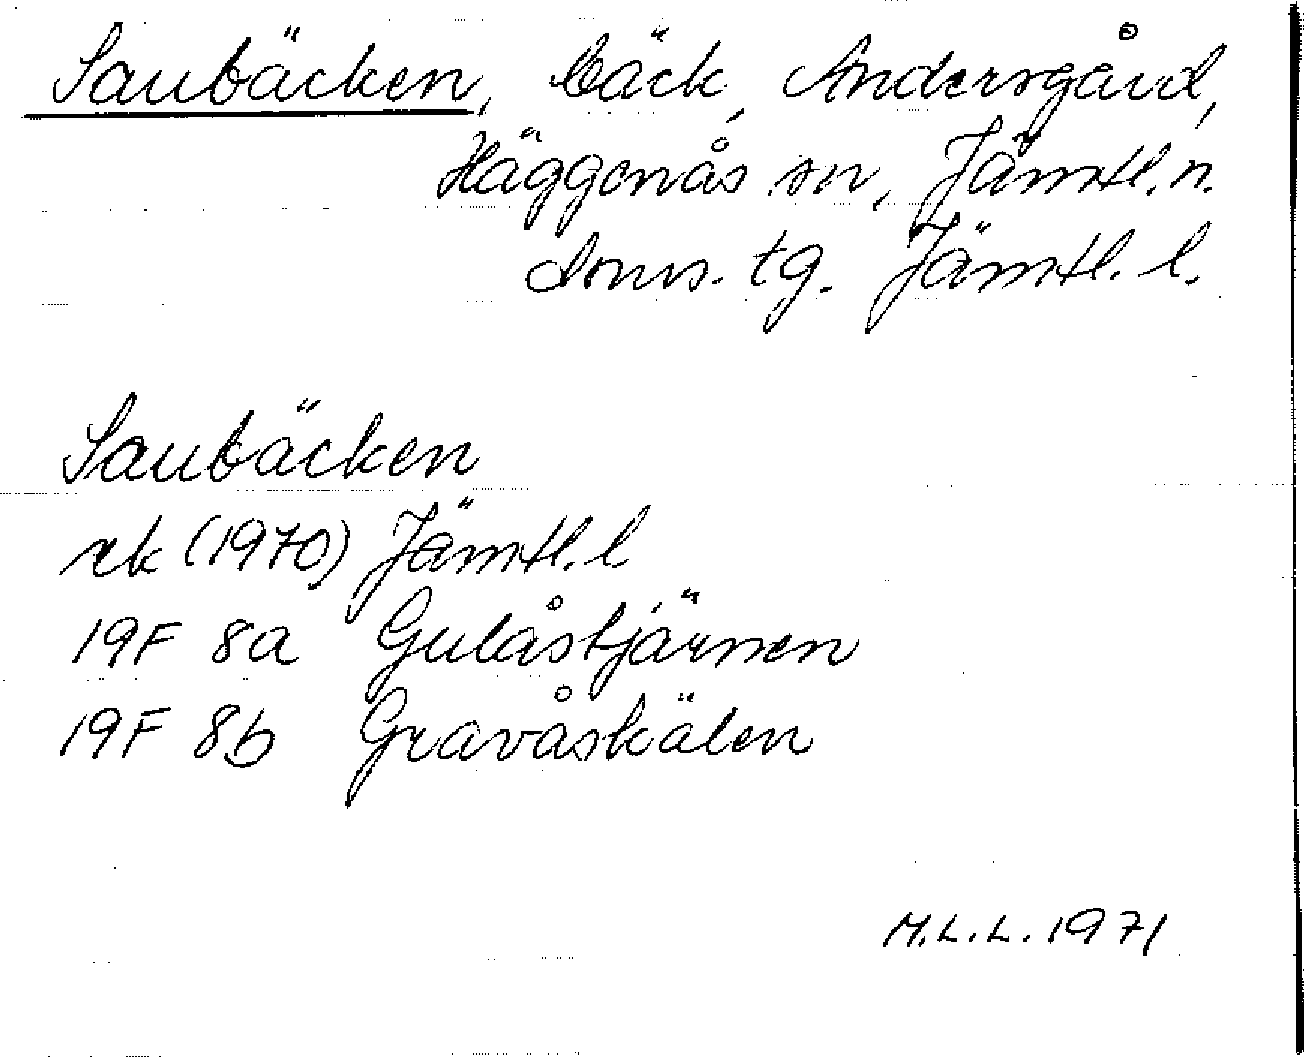 Saubäcken, bäck, Andersgård,
Häggenås sn, Jämtl.n.
doms. tg. Jämtl. l.
Saubäcken
rk (1970) Jämtl. l
19F 8a Gulåstjärnen
19F 8b Gravåskälen
M.L.L. 1971